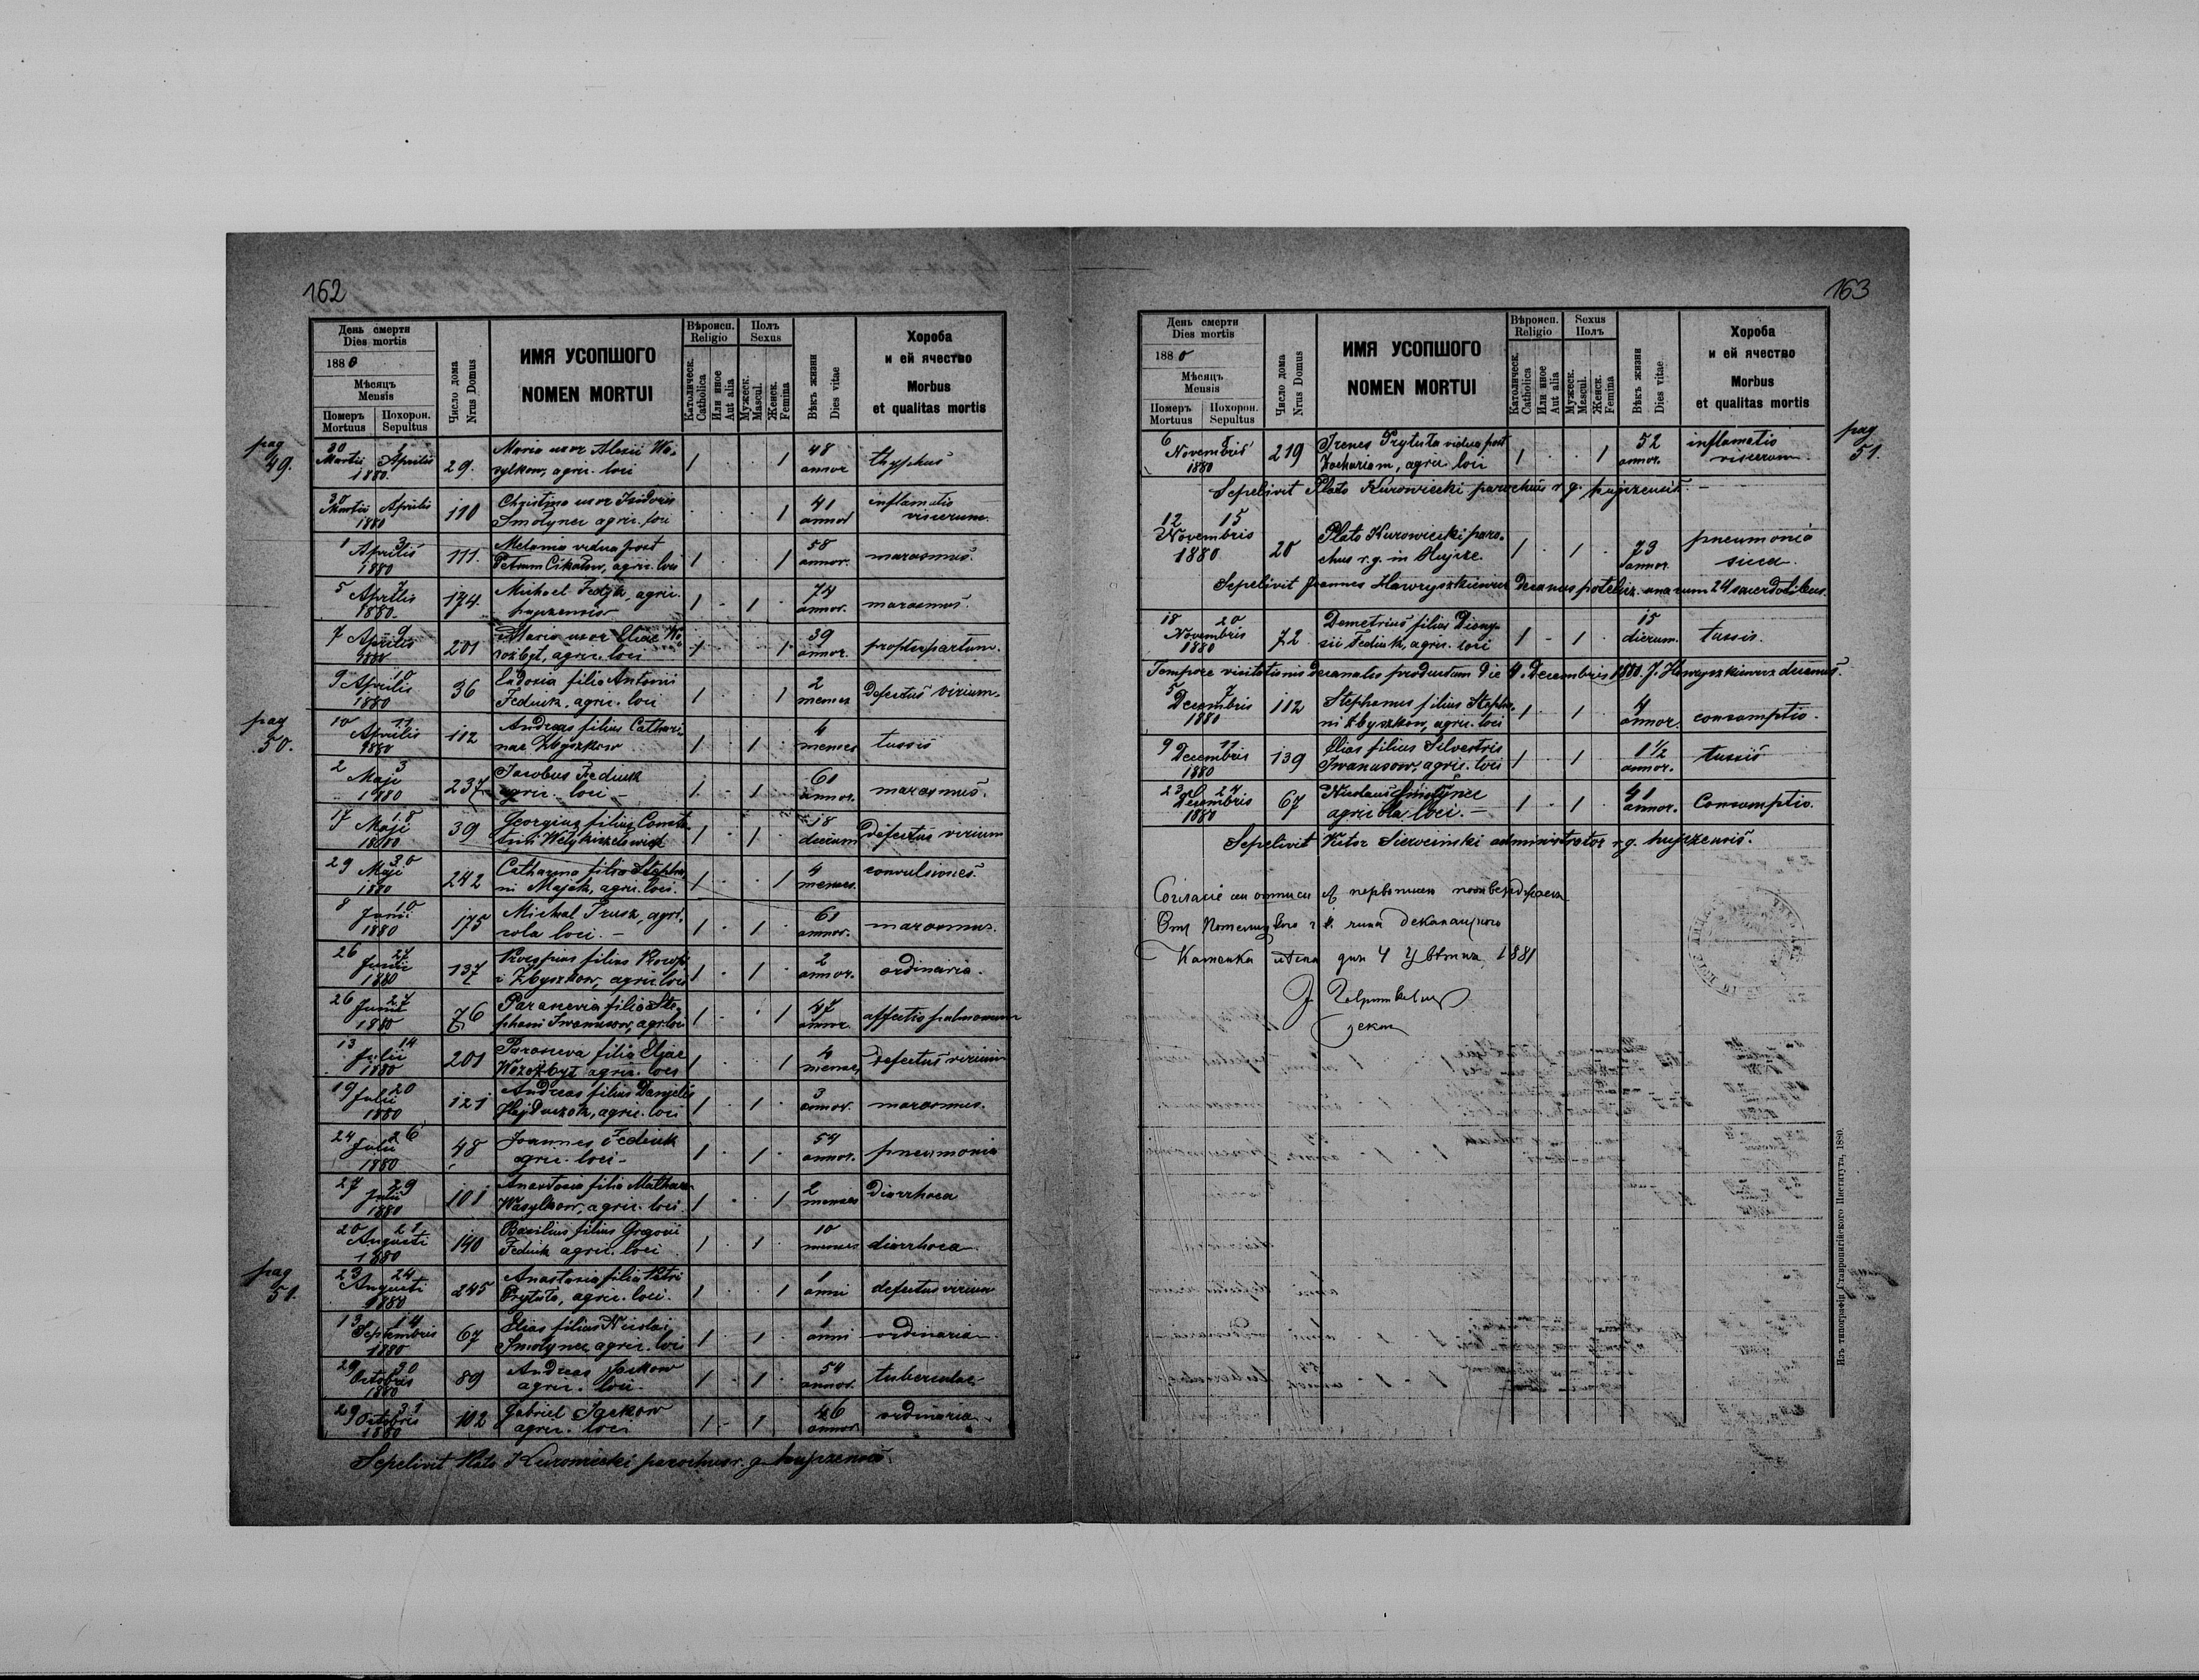 162
День смерти
Dies mortis
1880
Мѣсяцъ
Mensis
Померъ
Mortuus
Похорон.
Sepultus
Число дома
Nrus Domus
ИМЯ УСОПШОГО
NOMEN MORTUI
Вѣроисп.
Religio
Католическ.
Catholica
Или иное
Aut alia
Полъ
Sexus
Мужеск.
Mascul.
Женск.
Femina
Вѣкъ жизни
Dies vitae
Хороба
и ей ячество
Morbus
et qualitas mortis
pag
49.
30 1
Martii Aprilis
1880.
29.
Maria uxor Alexii Wa-
sylkow, agric. loci
1 1
48
annor
thyphus
30
Martii Aprilis
1880
110
Christina uxor Isidoris
Smolynec agric. loci
1
41
annor
inflamatio
viscerum
1 3
Aprilis
1880
111.
Melania vidua post
Petrum Cikalow, agric. loci
1 1
58
annor.
marasmus.
5 7
Aprilis
1880.
174.
Michael Fedyk, agric.
hujczensis
1 1
74
annor.
marasmus.
7 9
Aprilis
1880
201
Maria uxor Eliae Wo-
rozbyt, agric. loci
1 1
39
annor.
propter partum.
9 10
Aprilis
1880
36
Eudoxia filia Antonii
Feduik, agric. loci
1 1
2
menses
Defectus virium.
pag
50.
10 11
Aprilis
1880
112
Andreas filius Cathari
nae Zbyszkow
1 1
4
menses
tussis
2 3
Maji
1880
237
Jacobus Fediuk
agric. loci -
1 1
61
annor.
marasmus.
17 18
Maji
1880
39
Georgius filius Consta
1 1
18
dierum
defectus virium
29 30
Maji
1880
242
Catharina filia Stepha
ni Majak, agric. loci.
1 1
4
menses.
convulsiones.
8 10
Junii
1880
175
Michael Prusz, agri-
cola loci. -
1 1
61
annor.
marasmus.
26 27
Junii
1880
137
i Zbyszkow, agric. loci
1 1
2
annor.
ordinaria.
26 27
Junii
1880
76
Parascevia filia Ste-
phani Iwanusow, agr. loci
1 1
47
annor.
affectio pulmonum
13 14
Julii
1880
201
Parasceva filia Eliae
Worozbyt agric. loci
1 1
4
menses
Defectus virium
19 20
Julii
1880
121
Andreas filius Danielis
Hajduczok, agric. loci
1 1
3
annor.
marasmus.
24 26
Julii
1880
48
Joannes Fediuk
agric. loci -
1 1
54
annor.
pneumonia
27 29
Julii
1880
101
Anastasia filia
Wasylkow, agric. loci
1 1
2
menses
Diarrhoea
20 21
Augusti
1880
140
Basilius filius Gregorii
Fediuk agric. loci
1 1
10
menses
diarrhoea
pag
51.
23 24
Augusti
1880
245
Anastasia filia Petri
Prytuta, agric. loci.
1 1
1
anni
defectus virium
13 14
Septembris
1880
67
Elias filius Nicolai
Smolynec agric. loci
1 1
1
anni
ordinaria
29 30
Octobris
1880
89
Andreas Jackow
agric. loci
1 1
54
annor.
tuberculae
29 31
Octobris
1880
102
Gabriel Jackow
agric. loci
1 1
46
annor.
ordinaria
Sepelivit Plato Kurowiecki parochus r. g. hujczensis
163
День смерти
Dies mortis
1880
Мѣсяцъ
Mensis
Померъ
Mortuus
Похорон.
Sepultus
Число дома
Nrus Domus
ИМЯ УСОПШОГО
NOMEN MORTUI
Вѣроисп.
Religio
Католическ.
Catholica
Или иное
Aut alia
Sexus
Полъ
Мужеск.
Mascul.
Женск.
Femina
Вѣкъ жизни
Dies vitae
Хороба
и ей ячество
Morbus
et qualitas mortis
pag
51.
6
Novembris
1880
219
Irenes Prytuta vidua post
Zachariam, agric. loci
1 1
52
annor.
inflamatio
viscerum
Sepelivit Plato Kurowiecki parochus r. g. hujczensis. -
12 15
Novembris
1880
20
Plato Kurowiecki paro-
chus r. g. in Hujcze.
1 1
73
annor.
pneumonia
sicca.
Sepelivit Joannes Hawryszkiewicz Decanus potelicz. una cum 24 sacerdotibus.
18 20
Novembris
1880
72
Demetrius filius Diony-
sii Fediuk, agric. loci
1 1
15
dierum.
tussis.
Tempore visitationis Decanalis productum die 4. Decembris 1880. J. Hawryszkiewicz decanus.
5 7
Decembris
1880
112
Stephanus filius Stepha-
ni Zbyszkow, agric. loci
1 1
4
annor.
consomptio.
9 11
Decembris
1880
139
Elias filius Silvestris
Iwanusow, agric. loci
1 1
1 1/2
annor.
tussis
23 24
Decembris
1880
67
Nicolaus Smolynec
agricola loci. -
1 1
41
annor.
Consomptio.
Sepelivit Victor Sierocinski administrator r. g. hujczensis.
дня 4 Цвѣтня, 1881
декан
Изъ типографіи Ставропигійского Института, 1880.